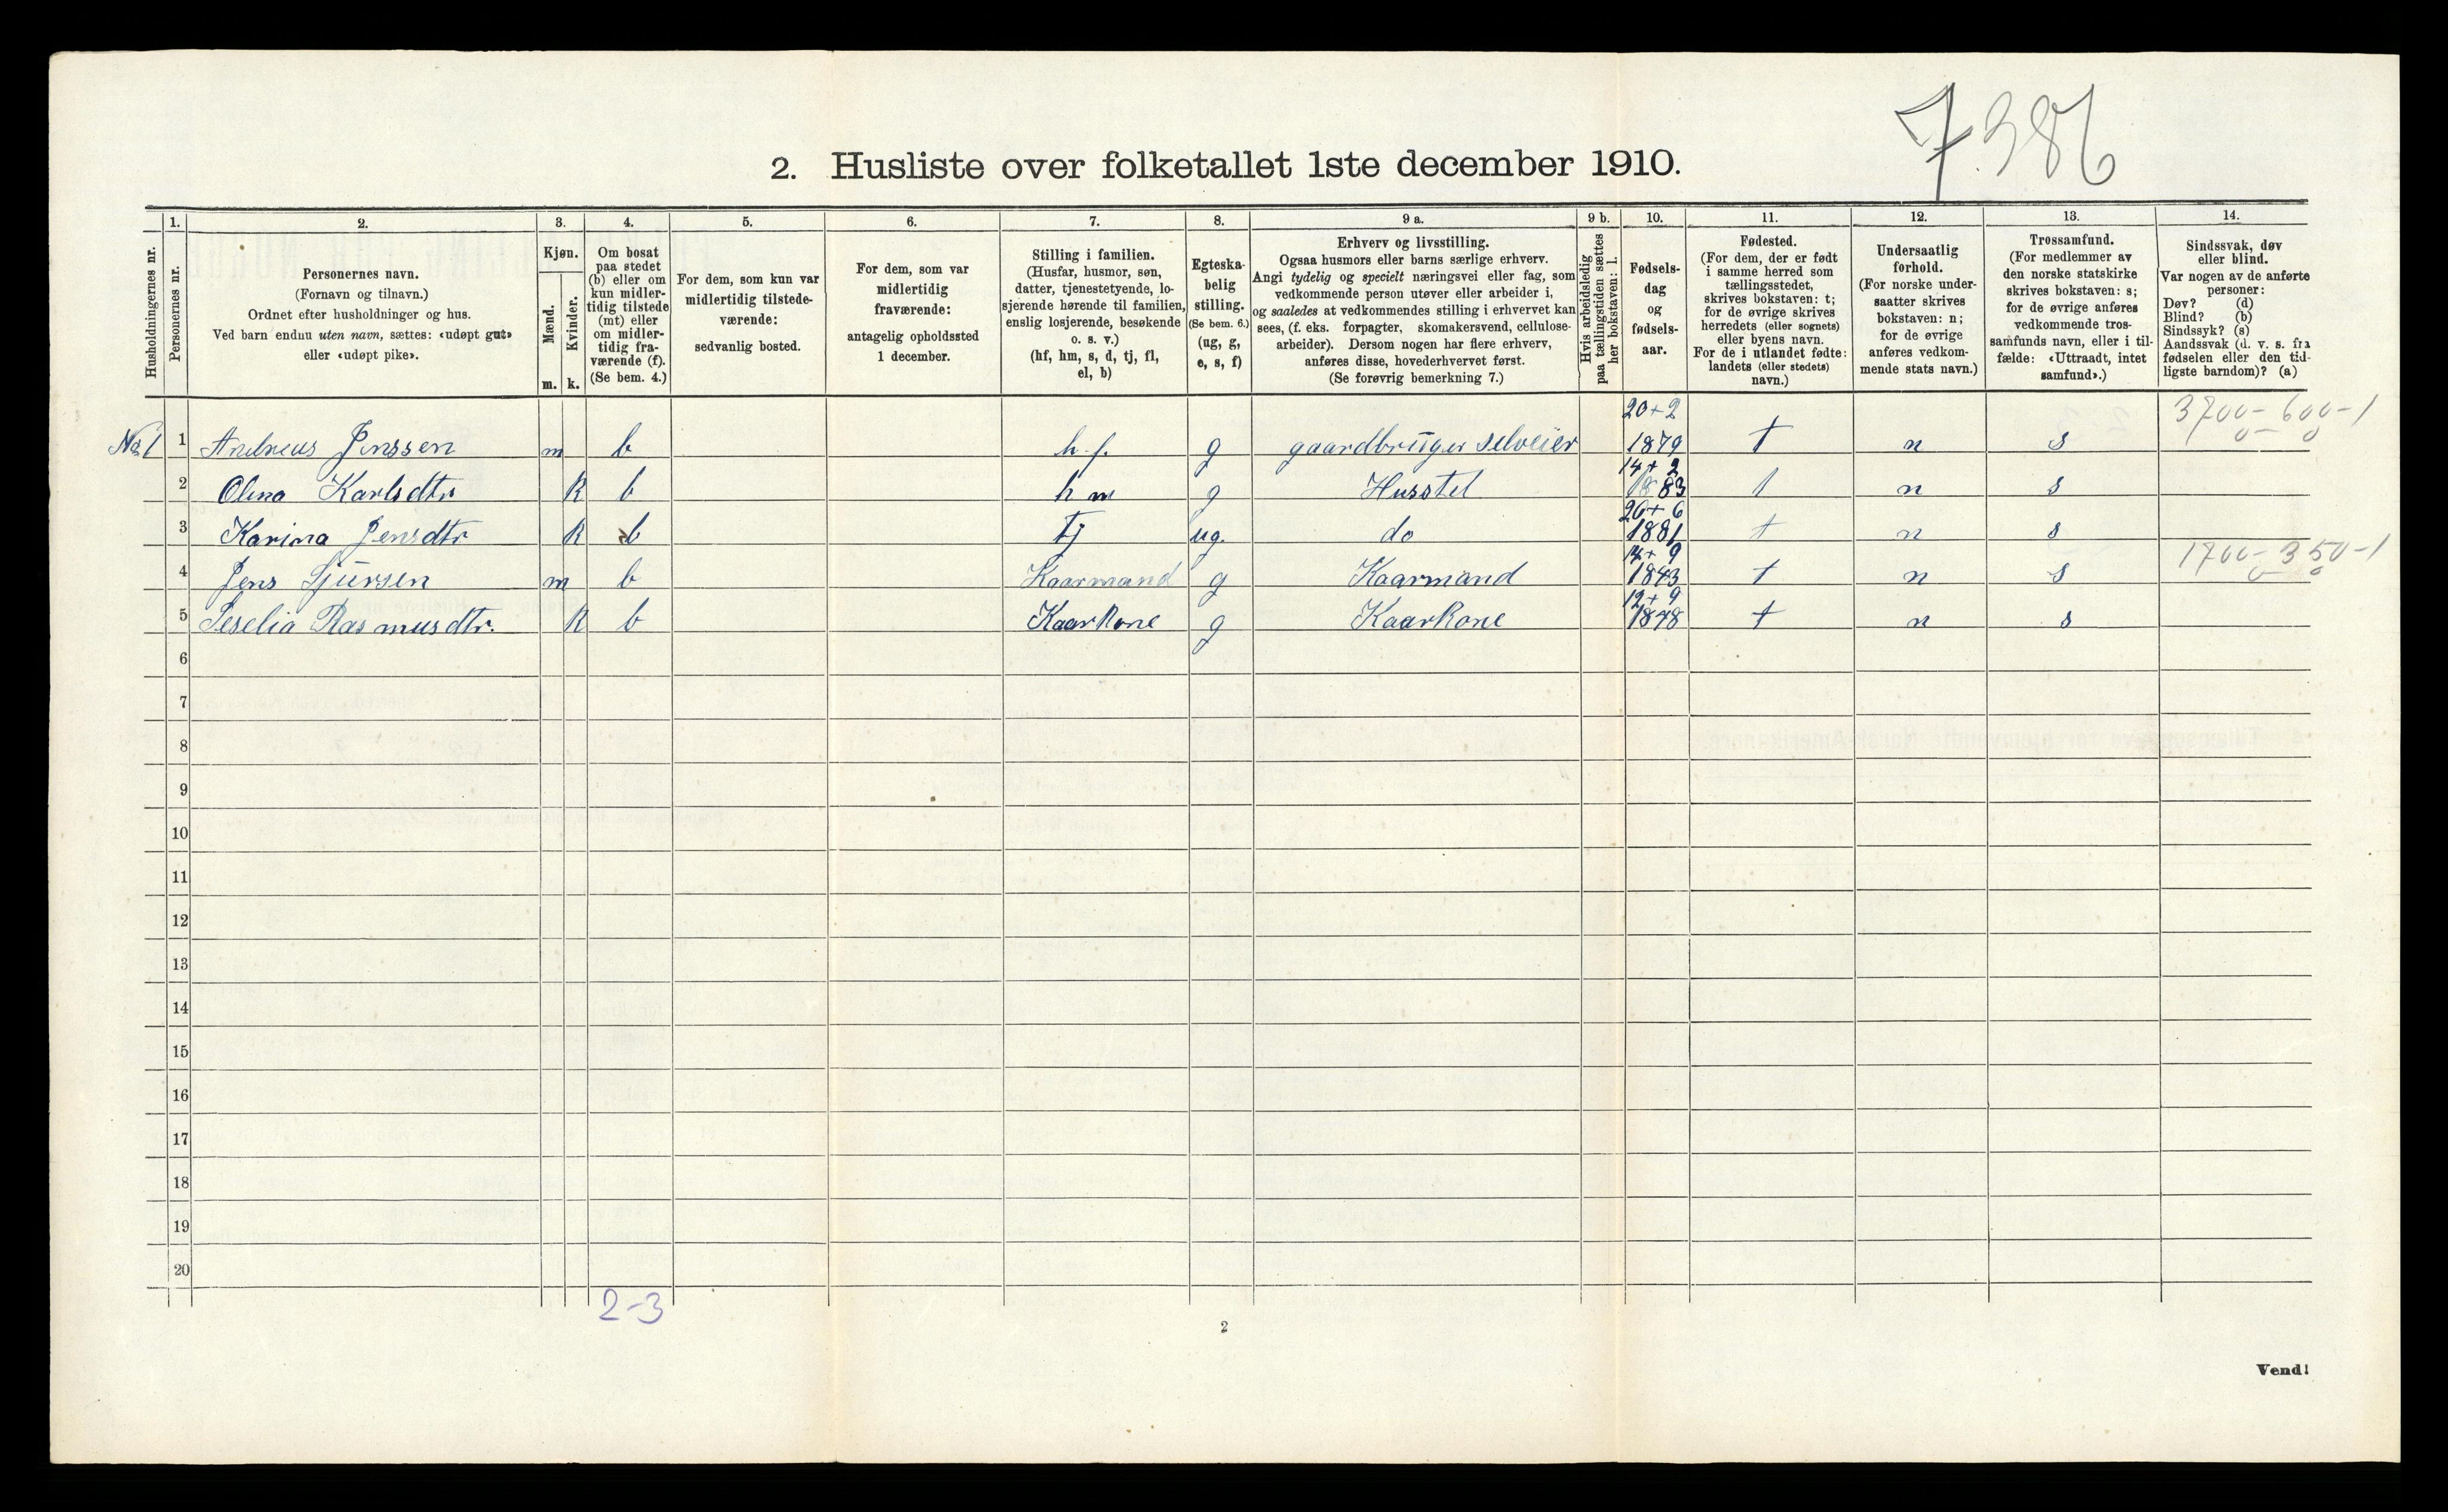 7386
2. Husliste over folketallet 1ste december 1910.
1. 2. 3. 4. 5. 6. 7. 8. 9 a. 9 b. 10. 11. 12. 13. 14.
Husholdningernes nr.
Personernes nr.
Personernes navn.
(Fornavn og tilnavn.)
Ordnet efter husholdninger og hus.
Ved barn endnu uten navn, sættes: «udøpt gut»
eller «udøpt pike».
Kjøn.
Mænd.
Kvinder.
m. k.
Om bosat
paa stedet
(b) eller om
kun midler-
tidig tilstede
(mt) eller
om midler-
tidig fra-
værende (f).
(Se bem. 4.)
For dem, som kun var
midlertidig tilstede-
værende:
sedvanlig bosted.
For dem, som var
midlertidig
fraværende:
antagelig opholdssted
1 december.
Stilling i familien.
(Husfar, husmor, søn,
datter, tjenestetyende, lo-
sjerende hørende til familien,
enslig losjerende, besøkende
o. s. v.)
(hf, hm, s, d, tj, fl,
el, b)
Egteska-
belig
stilling.
(Se bem. 6.)
(ug, g,
e, s, f)
Erhverv og livsstilling.
Ogsaa husmors eller barns særlige erhverv.
Angi tydelig og specielt næringsvei eller fag, som
vedkommende person utøver eller arbeider i,
og saaledes at vedkommendes stilling i erhvervet kan
sees, (f. eks. forpagter, skomakersvend, cellulose-
arbeider). Dersom nogen har flere erhverv,
anføres disse, hovederhvervet først.
(Se forøvrig bemerkning 7.)
Hvis arbeidsledig
paa tællingstiden sættes
her bokstaven: l.
Fødsels-
dag
og
fødsels-
aar.
Fødested.
(For dem, der er født
i samme herred som
tællingsstedet,
skrives bokstaven: t;
for de øvrige skrives
herredets (eller sognets)
eller byens navn.
For de i utlandet fødte:
landets (eller stedets)
navn.)
Undersaatlig
forhold.
(For norske under-
saatter skrives
bokstaven: n;
for de øvrige
anføres vedkom-
mende stats navn.)
Trossamfund.
(For medlemmer av
den norske statskirke
skrives bokstaven: s;
for de øvrige anføres
vedkommende tros-
samfunds navn, eller i til-
fælde: «Uttraadt, intet
samfund».)
Sindssvak, døv
eller blind.
Var nogen av de anførte
personer:
Døv? (d)
Blind? (b)
Sindssyk? (s)
Aandssvak (d. v. s. fra
fødselen eller den tid-
ligste barndom)? (a)
20+2 3700-600-1
No 1 1 Andreas Jenssen m b h.f. g gaardbruger selveier 1879 t n s 0 0
14+2
2 Olina Karlsdtr k b h m g Husstel 1883 t n s
20+6
3 Karina Jensdtr k b Tj ug. do 1881 t n s
14+9 1700-350-1
4 Jens Sjursen m b Kaarmand g Kaarmand 1843 t n s 0 0
12+9
5 Seselia Rasmusdtr. k b Kaarkone g Kaarkone 1848 t n s
6
7
8
9
10
11
12
13
14
15
16
17
18
19
20
2-3
2
Vend!